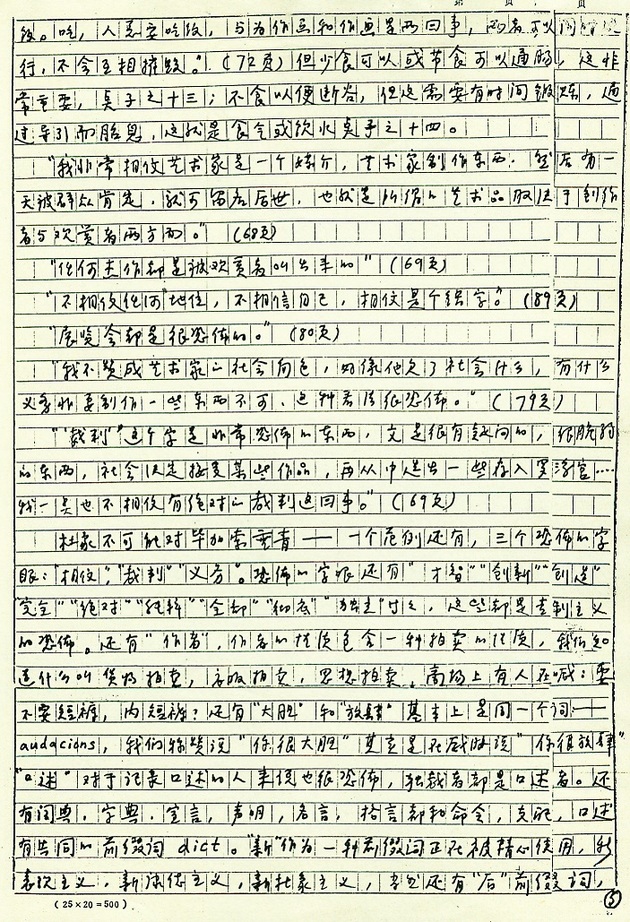 饭。吃，人总要吃饭，与为作画和作画是两回事，两者可以同时进
行，不会互相排毁。”（72页）但少食可以或节食可以通肠，这非
常重要，臭子之十三；不食以便断谷，但这需要有时间锻炼，通
过导引而胎息，这就是食气或饮水臭子之十四。
“我非常相信艺术家是一个媒介，艺术家制作东西，然后有一
天被群众肯定，就可留名后世，也就是所谓的艺术品取决于创作
者与欢赏者两方面。”（68页）
“任何杰作都是被欢赏者叫出来的”（69页）
“不相信任何地位，不相信自己，相信是个错字。”（89页）
“展览会都是很恐怖的。”（80页）
“我不赞成艺术家的社会角色，好像他欠了社会什么，有什么
义务非要制作一些东西不可，这种看法很恐怖。”（79页）
“‘裁判’这个字是非常恐怖的东西，又是很有疑问的，很脆弱
的东西，社会决定接受某些作品，再从中选出一些存入罗浮宫……
我一点也不相信有绝对的裁判这回事。”（69页）
杜象不可能对毕加索垂青——一个范例还有，三个恐怖的字
眼：“相信”，“裁判”“义务”。恐怖的字眼还有“才智”“创新”“创造”
“完全”“绝对”“纯粹”“全部”“彻底”“独走”什么，这些都是专制主义
的恐怖。还有“作者”，作者的性质包含一种拍卖的性质，我们知
道什么叫货物拍卖，文物拍卖，思想拍卖。商场上有人在喊：要
不要短裤，内短裤？还有“大胆”和“放肆”基本上是同一个词——
audacions，我们称赞说“你很大胆”其实是在威胁说“你很放肆”
“口述”对于记录口述的人来说也很恐怖，独裁者都是口述者。还
有词典，字典，宣言，声明，名言，格言都和命令，支配，口述
有共同的前缀词 dict。“新”作为一种前缀词正在被精心使用，新
表现主义，新浪漫主义，新社会主义，另外还有“后”前缀词，
（25×20=500）
⑤